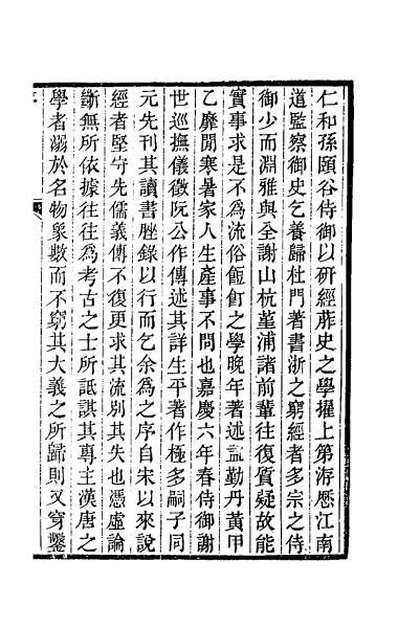 仁和孫頤谷侍御以研經蒱史之學擢上第洊歷江南
道監察御史乞養歸杜門著書浙之窮經者多宗之侍
御少而淵雅與全謝山杭堇浦諸前輩往復質疑故能
實事求是不為流俗飣飣之學晚年著述益勤丹黃甲
乙靡閒寒暑家人生產事不問也嘉慶六年春侍御謝
世巡撫儀徵阮公作傳述其詳生平著作極多嗣子同
元先刊其讀書脞錄以行而乞余為之序自宋以來說
經者堅守先儒義傳不復更求其流別其失也憑虛論
斷無所依據往往為考古之士所詆諆其專主漢唐之
學者溺於名物象數而不窮其大義之所歸則又穿鑿